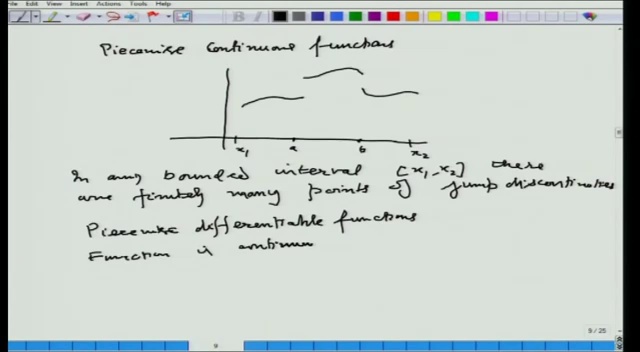 View Insert Actions Tools Help
Piecewise Continuous functions
x1 a b x2
In any bounded interval [x1, x2] there
are finitely many points of jump discontinuities
Piecewise differentiable functions
Function is continuou
9 / 25
9